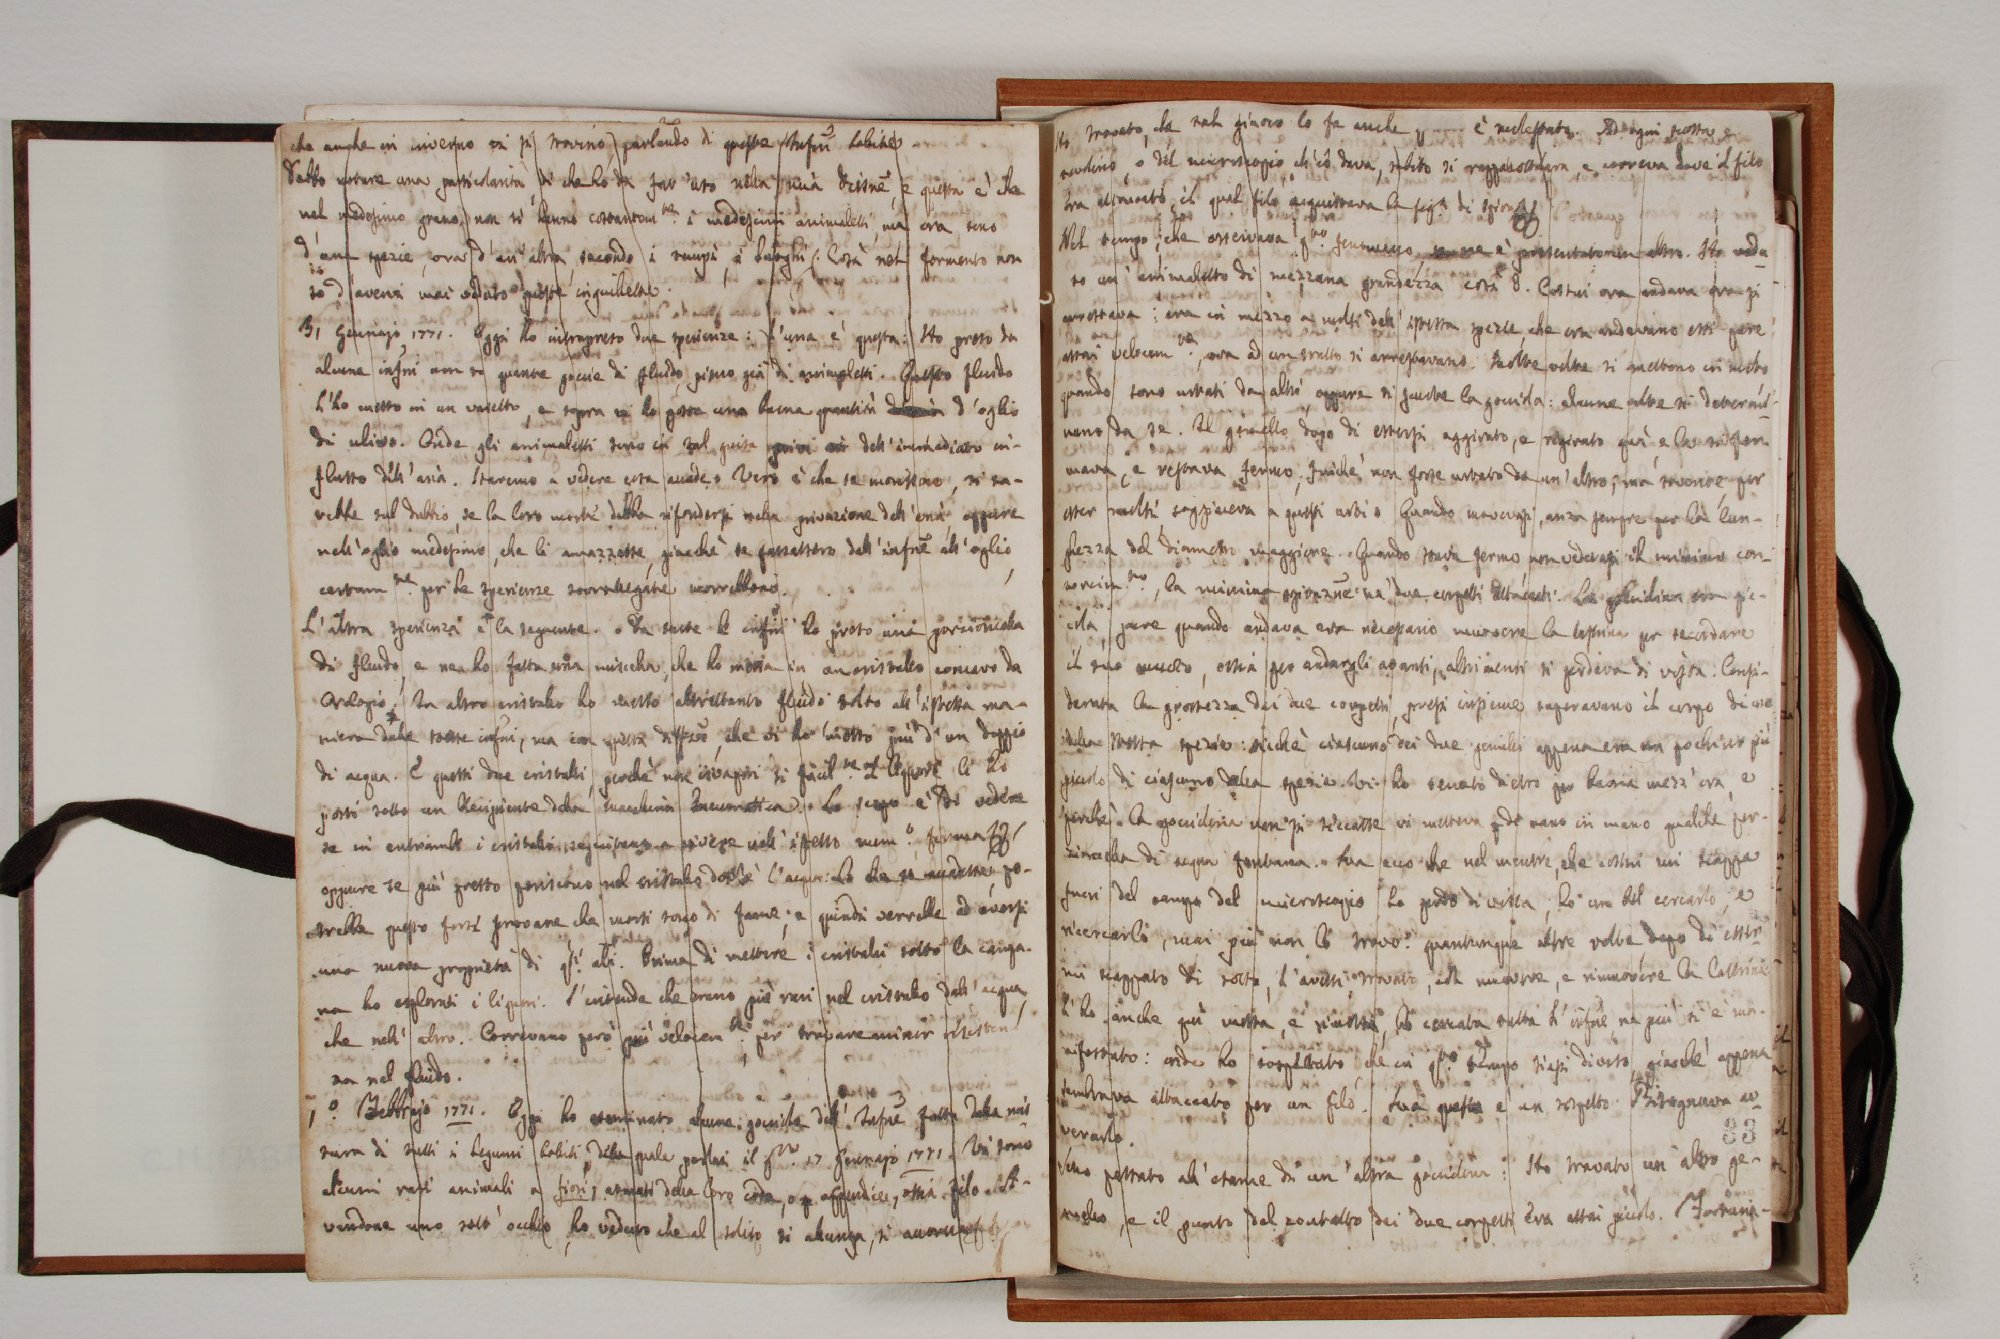 che anche in inverno vi si trovino, parlando di queste infus.ⁿⁱ bollite.
Debbo notare una particolarità di che ho da far uso nella mia Dissne, e questa è che
nel medesimo grano non si hanno costantem.te i medesimi animaletti, ma ora sono
d'una spezie, ora d'un'altra, secondo i tempi, e luoghi. Così nel formento non
so d'avervi mai veduto queste inguillette.
31 Gennajo 1771. Oggi ho intrapreso due sperienze: L'una è questa: Ho preso da
alcune infni non so quante goccie di fluido pieno già di animaletti. Questo fluido
l'ho messo in un vasetto, e sopra vi ho posta una buona quantità d'oglio
di ulivo. Onde gli animaletti sono in tal guisa privi dell'immediato in-
flusso dell'aria. Staremo a vedere cosa accade. Vero è che se morissero, si sa-
rebbe sul dubbio, se la loro morte debba rifondersi nella privazione dell'aria oppure
nell'oglio medesimo, che li amazzasse, giacchè se passassero dall'infne all'oglio,
certam.te per le sperienze sovrallegate morrebbono.
L'altra sperienza è la seguente. Da sette infni ho preso una porzioncella
di fluido, e ne ho fatta una miscela, che ho messa in un cristallo concavo da
orologio. In altro cristallo ho messo altrettanto fluido tolto all'istessa ma-
niera dalle stesse infni, ma con questa differe, che vi ho messo più d'un doppio
di acqua. E questi due cristalli, perchè non isvapori sì facil.te il liquore li ho
posti sotto un Recipiente della Macchina Pneumatica. Lo scopo è di vedere
se in entrambi i cristalli seguitano a vivere nell'istesso num.o, e forma
oppure se più presto periscono nel cristallo dov'è l'acqua: Lo che se accadesse, po-
trebbe questo forse provare che morti sono di fame; e quindi verrebbe ad aversi
una nuova proprietà di qsti ali. Prima di mettere i cristalli sotto la campa-
na ho esplorati i liquori. S'intende che erano più rari nel cristallo dall'acqua,
che nell'altro. Correvano però più velocem.te per trovare minor resisten-
za nel fluido.
1.o Febbrajo 1771. Oggi ho esaminato alcune gocciole dell'Infne fatta dalla mis-
tura di tutti i legumi bolliti, della quale parlai il gno 17 Gennajo 1771. Vi sono
alcuni rari animali a fiori, armati della loro coda, o appendice, ossia filo. A-
vendone uno sott'occhio, ho veduto che al solito si alunga, si accorcia
Ho trovato, che tal giuoco lo fa anche è molestato. Ad ogni scossa
tavolino, o del microscopio, ch'io dava, subito si rappallottolava, e correva dove il filo
era attaccato, il qual filo acquistava la fig.a di spiral
Nel tempo, che osservava q.to fenomeno, se ne è presentato un altro. Ho vedu-
to un animaletto di mezzana grandezza così 8. Costui ora andava ora si
arrestava: era in mezzo a molti dell'istessa spezie, che ora andavano essi pure
assai velocem.te, ora ad un tratto si arrestavano. Molte volte si mettono in moto
quando sono urtati da altri, oppure si scuote la gocciola: alcune altre si determi-
nano da se. Il gemello dopo di essersi aggirato, e rigirato quà, e là si fer-
mava, e restava fermo, finchè non fosse urtato da un'altro; ma sovente per
esser molti soggiaceva a questi urti. Quando movevasi, anza sempre per la lun-
ghezza del diametro maggiore. Quando stava fermo non vedevasi il minimo con-
torcim.to, la minima ne' due corpetti attaccati. La gocciolina era pic-
cola, pure quando andava era necessario muovere la lastrina per secondare
il suo moto, ossia per andargli avanti, altrimenti si perdeva di vista. Consi-
derata la grossezza dei due corpetti, presi insieme superavano il corpo di uno
della stessa spezie: sicchè ciascuno dei due gemelli appena era un pochino più
picolo di ciascuno della spezie. Vi ho tenuto dietro per buona mezz'ora, e
perchè la gocciolina non si seccasse vi metteva di mano in mano qualche por-
zioncella di acqua fontana. Ma ecco che nel mentre, che costui mi scappa
fuori del campo del microscopio lo perdo di vista, ho un bel cercarlo, e
ricercarlo, mai più non lo trovo: quantunque altre volte dopo di esser
mi scappato di sotto, l'avessi trovato, col muovere, e rimuovere la lastrina.
L'ho anche più mossa, e rimossa, ho cercata tutta l'infne ne più si è ma-
nifestato: onde ho sospettato, che in qsto tempo siasi diviso, giacchè appena
sembrava attaccato per un filo. Ma questo è un sospetto. Bisognava av-
verarlo.
33
Sono passato all'esame di un'altra gocciolina: Ho trovato un altro ge-
mello, e il punto del contatto dei due corpetti era assai picolo. Fortuna-